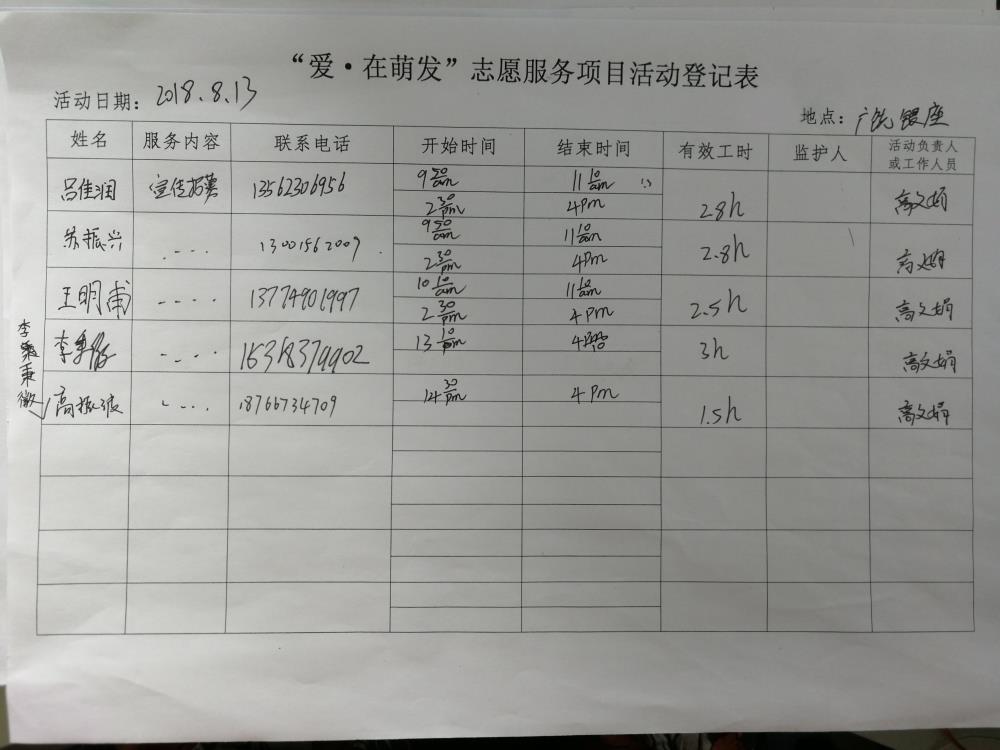 “爱·在萌发”志愿服务项目活动登记表
活动日期：2018.8.13
地点：广饶银座
姓名 服务内容 联系电话 开始时间 结束时间 有效工时 监护人 活动负责人或工作人员
吕佳润 宣传招募 13562306956 9 50 am 11 10 am 2.8h 高文娟
2 30 pm 4pm
苏振兴 ---- 13001562009 9 50 am 11 10 am 2.8h 高文娟
2 30 pm 4pm
王明甫 ---- 13774901997 10 10 am 11 10 am 2.5h 高文娟
2 30 pm 4pm
李秉徽 ---- 16318379902 13 10 pm 3h 高文娟
高振波 ---- 18766734709 14 30 pm 4pm 1.5h 高文娟